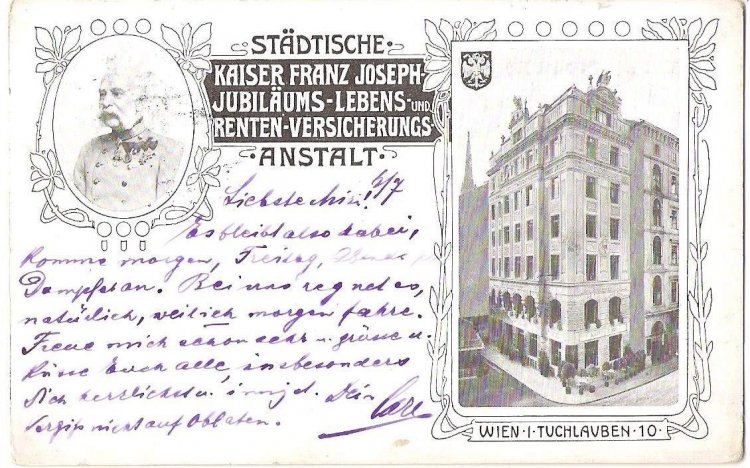 STÄDTISCHE
KAISER FRANZ JOSEPH-
JUBILÄUMS-LEBENS-UND
RENTEN-VERSICHERUNGS-
ANSTALT.
Liebste
Es bleibt also dabei,
komme morgen, Freitag,
Dampfer an. Bei uns regnet es,
natürlich, weil ich morgen fahre.
Freue mich schon sehr u. grüsse u.
küsse Euch alle, insbesonders
Dich herzlichst u. innigst. Dein
Vergiss nicht auf Oblaten.
WIEN·I·TUCHLAUBEN·10·